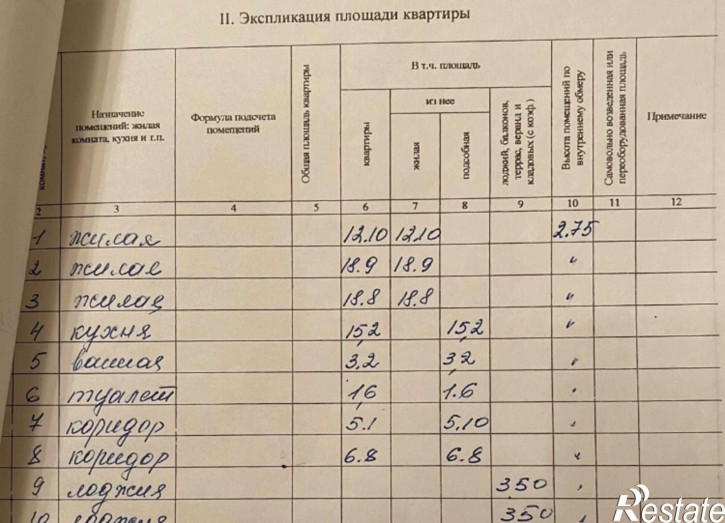 II. Экспликация площади квартиры
Назначение помещений: жилая комната, кухня и т.п.
Формула подсчета помещений
Общая площадь квартиры
В т.ч. площадь
из нее
квартиры
жилая
подсобная
лоджий, балконов, террас, веранд и кладовых (с коэф.)
Высота помещений по внутреннему обмеру
Самовольно возведенная или переоборудованная площадь
Примечание
2 3 4 5 6 7 8 9 10 11 12
1 жилая 12.10 12.10 2.75
2 жилая 18.9 18.9 "
3 жилая 18.8 18.8 "
4 кухня 15,2 15,2 "
5 ванная 3,2 3,2 "
6 туалет 1,6 1.6 "
7 коридор 5.1 5,10 "
8 коридор 6.8 6.8 "
9 лоджия 3,50 "
10 лоджия 3,50 "
Restate